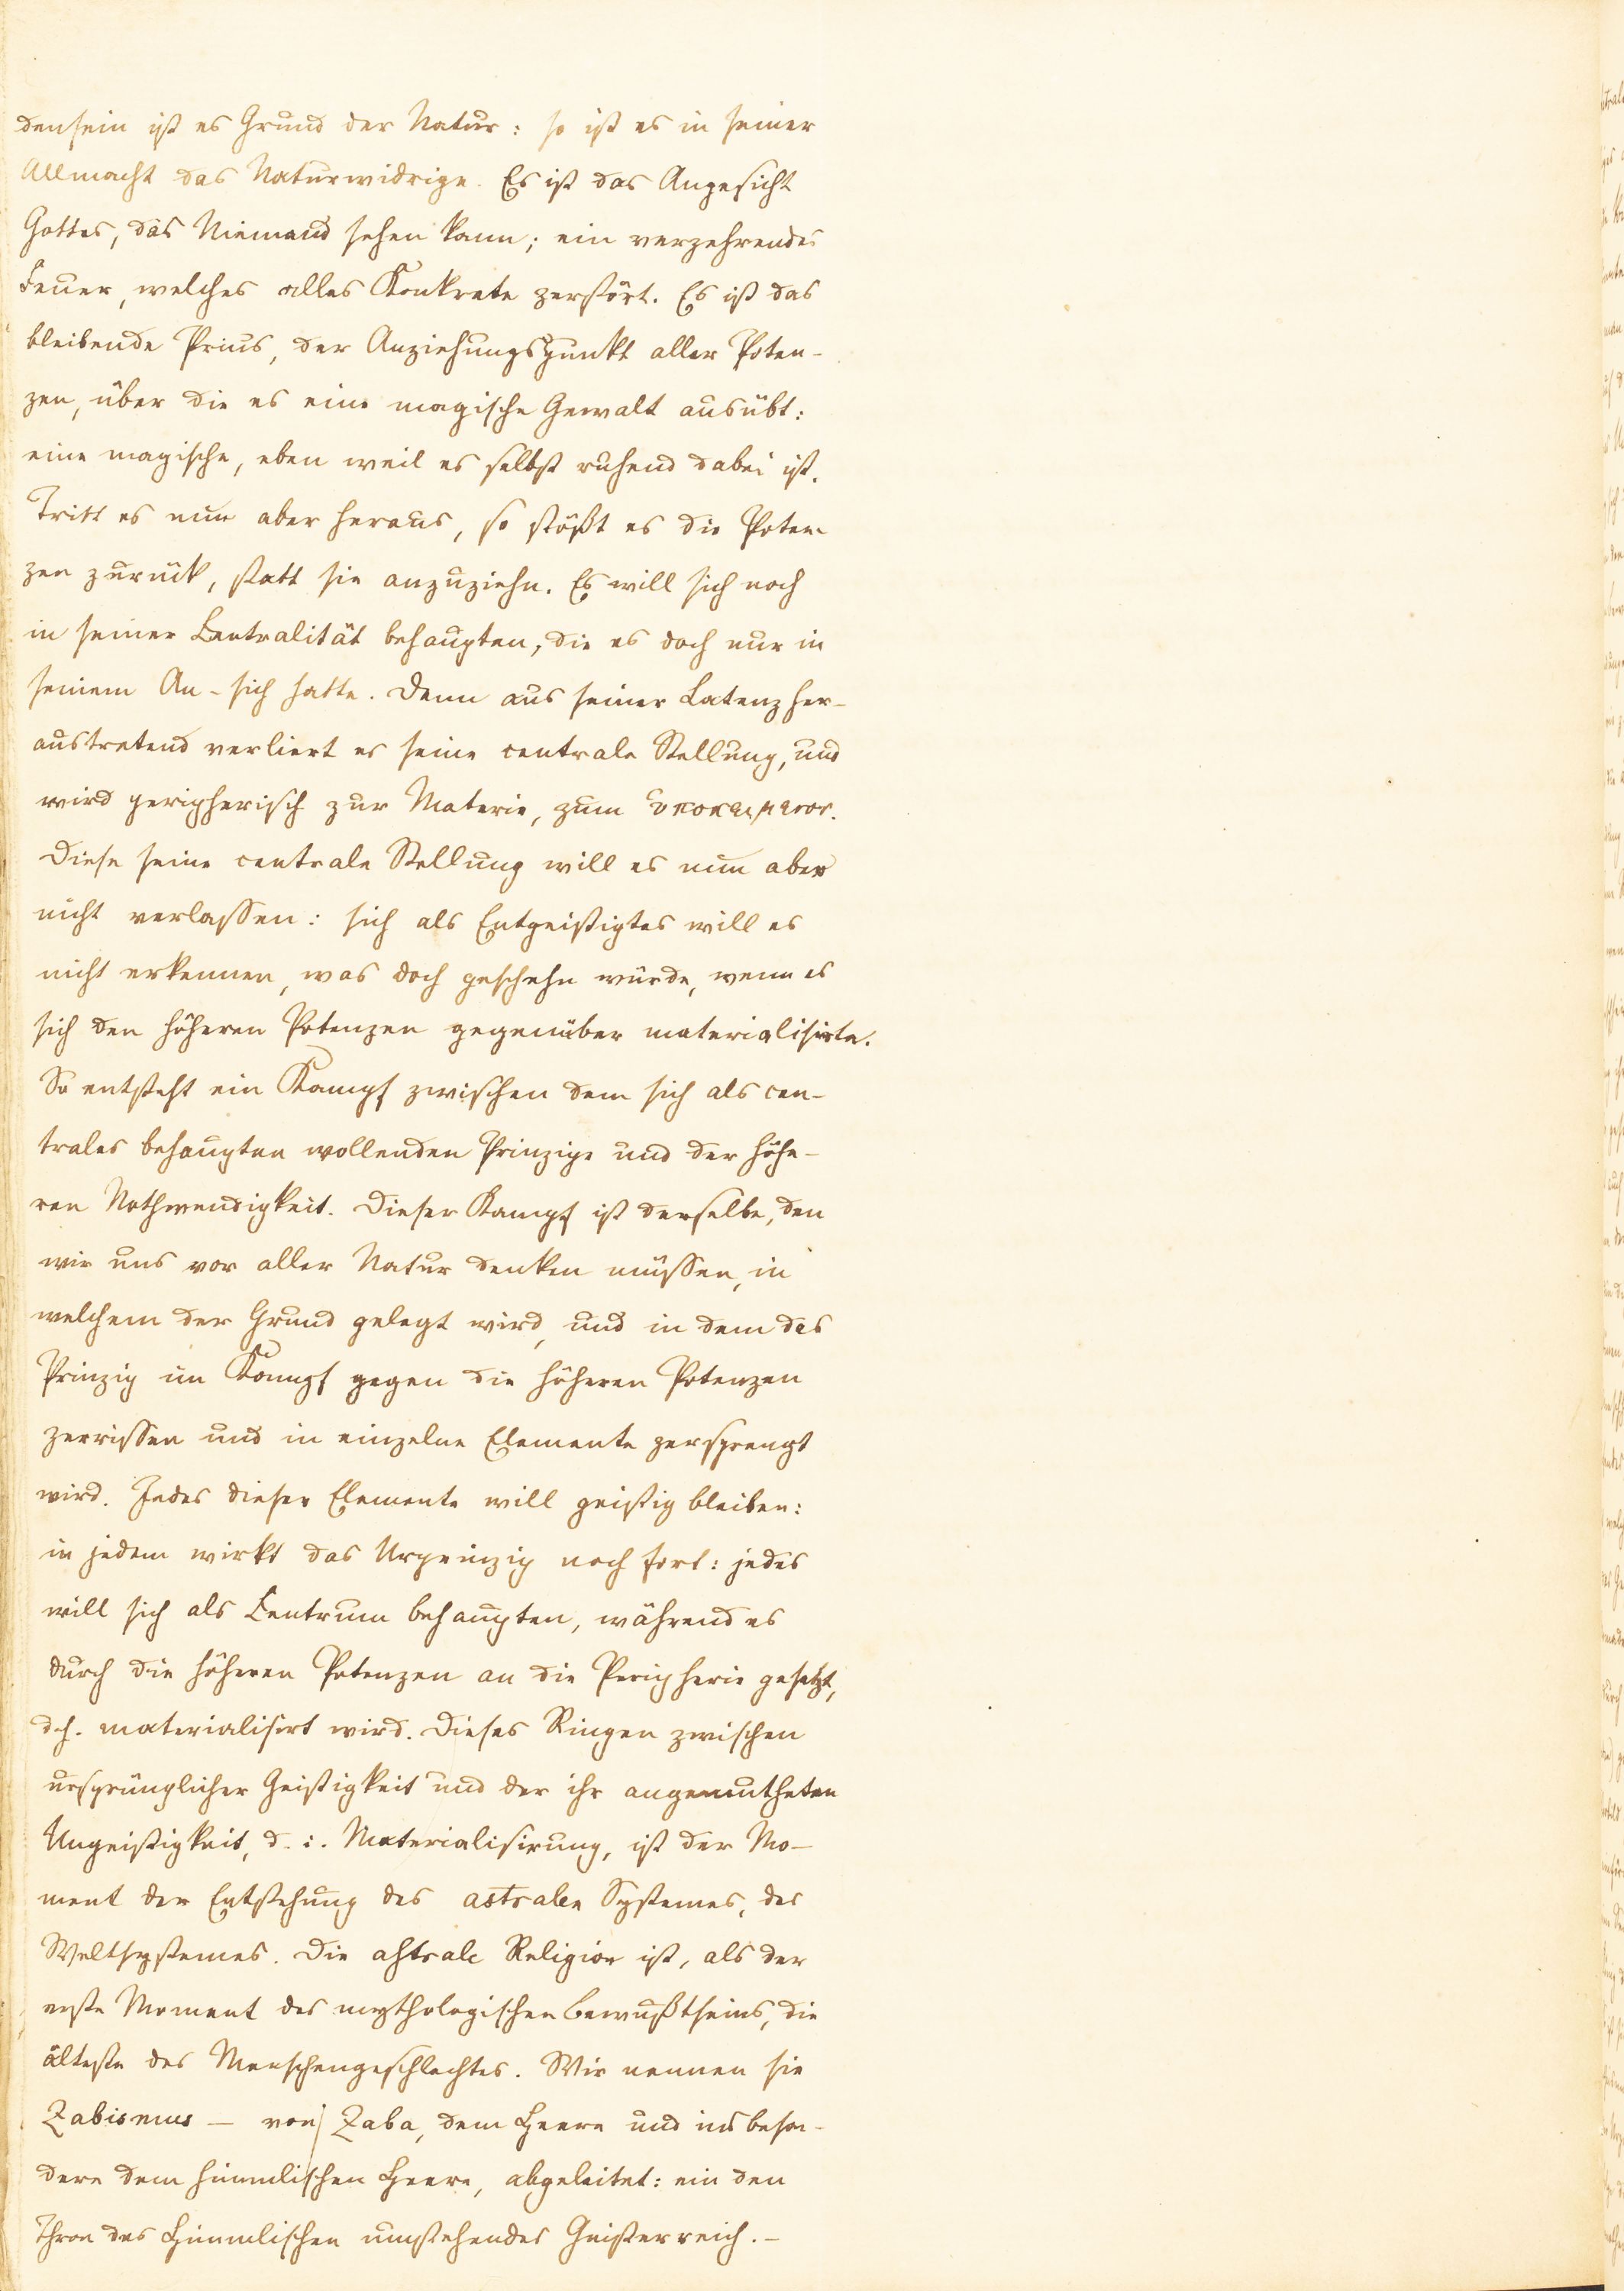 densein ist es Grund der Natur: so ist es in seiner
Allmacht das Naturwidrige. Es ist das Angesicht
Gottes, das Niemand sehen kann; ein verzehrendes
Feuer, welches alles Konkrete zerstört. Es ist das
bleibende Prius, der Anziehungspunkt aller Poten-
zen, über die es eine magische Gewalt ausübt:
eine magische, eben weil es selbst ruhend dabei ist.
Tritt es nun aber heraus, so stößt es die Poten
zen zurück, statt sie anzuziehn. Es will sich noch
in seiner Centralität behaupten, die es doch nur in
seinem An-sich hatte. Denn aus seiner Latenz her-
austretend verliert es seine centrale Stellung, und
wird peripherisch zur Materie, zum ὑποκειμενον.
Diese seine centrale Stellung will es nun aber
nicht verlassen: sich als Entgeistigtes will es
nicht erkennen, was doch geschehn würde, wenn es
sich den höheren Potenzen gegenüber materialisirte.
So entsteht ein Kampf zwischen dem sich als cen-
trales behaupten wollenden Prinzipe und der höhe-
ren Nothwendigkeit. Dieser Kampf ist derselbe, den
wir uns vor aller Natur denken müssen, in
welchem der Grund gelegt wird, und in dem das
Prinzip im Kampf gegen die höheren Potenzen
zerrissen und in einzelne Elemente zersprengt
wird. Jedes dieser Elemente will geistig bleiben:
in jedem wirkt das Urprinzip noch fort: jedes
will sich als Centrum behaupten, während es
durch die höheren Potenzen an die Peripherie gesetzt,
d.h. materialisirt wird. Dieses Ringen zwischen
ursprünglicher Geistigkeit und der ihr angemutheten
Ungeistigkeit, d. i. Materialisirung, ist der Mo-
ment der Entstehung des astralen Systemes, des
Weltsystemes. Die astrale Religion ist, als der
erste Moment des mythologischen Bewußtseins, die
älteste des Menschengeschlechtes. Wir nennen sie
Zabismus - von Zaba, dem Heere und insbeson-
dere dem himmlischen Heere, abgeleitet: ein den
Thron des Himmlischen umstehendes Geisterreich. -